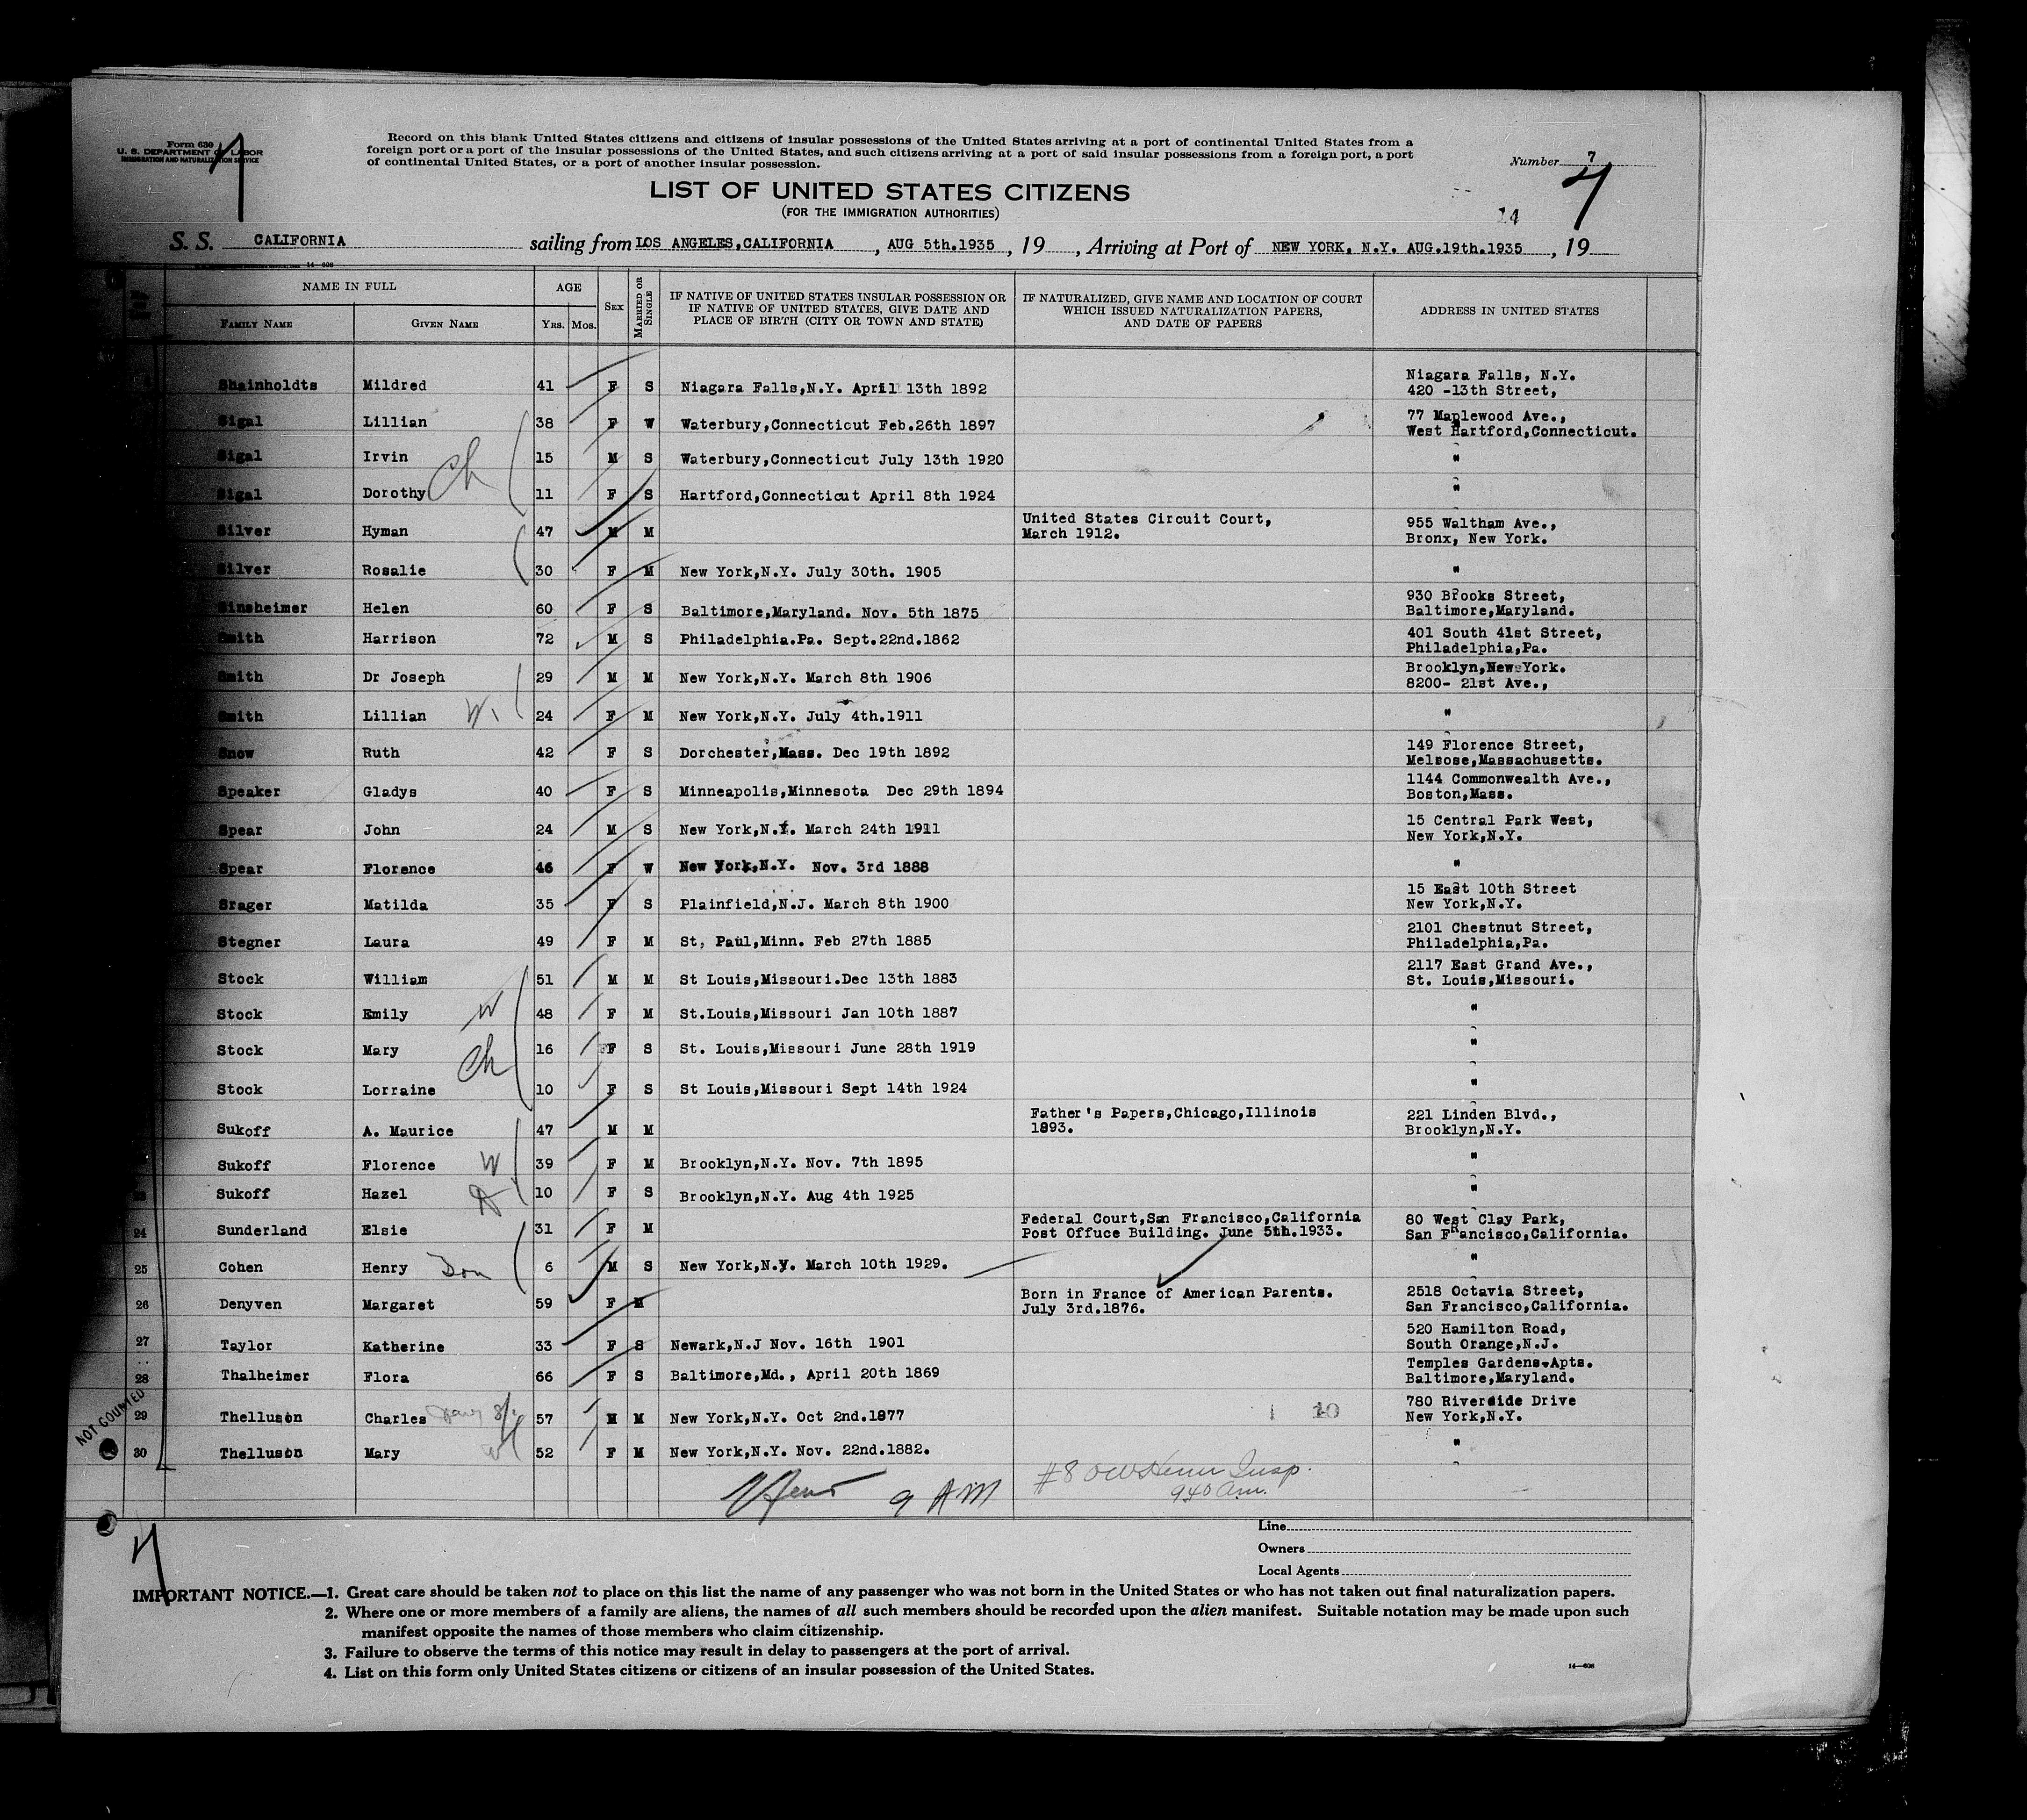 Form 630
U. S. DEPARTMENT OF LABOR
IMMIGRATION AND NATURALIZATION SERVICE
Record on this blank United States citizens and citizens of insular possessions of the United States arriving at a port of continental United States from a
foreign port or a port of the insular possessions of the United States, and such citizens arriving at a port of said insular possessions from a foreign port, a port
of continental United States, or a port of another insular possession.
Number 7
LIST OF UNITED STATES CITIZENS
(FOR THE IMMIGRATION AUTHORITIES)
14
S. S. CALIFORNIA sailing from LOS ANGELES,CALIFORNIA , AUG 5th.1935 , 19 , Arriving at Port of NEW YORK, N.Y. AUG.19th.1935 , 19
14—608
NAME IN FULL AGE SEX MARRIED OR SINGLE IF NATIVE OF UNITED STATES INSULAR POSSESSION OR IF NATURALIZED, GIVE NAME AND LOCATION OF COURT ADDRESS IN UNITED STATES
IF NATIVE OF UNITED STATES, GIVE DATE AND WHICH ISSUED NATURALIZATION PAPERS,
FAMILY NAME GIVEN NAME YRS. MOS. PLACE OF BIRTH (CITY OR TOWN AND STATE) AND DATE OF PAPERS
Niagara Falls, N.Y.
Shainholdts Mildred 41 F S Niagara Falls,N.Y. April 13th 1892 420 -13th Street,
77 Maplewood Ave.,
Sigal Lillian 38 F W Waterbury,Connecticut Feb.26th 1897 West Hartford,Connecticut.
Sigal Irvin 15 M S Waterbury,Connecticut July 13th 1920 "
Sigal Dorothy Ch 11 F S Hartford,Connecticut April 8th 1924 "
United States Circuit Court, 955 Waltham Ave.,
Silver Hyman 47 M M March 1912. Bronx, New York.
Silver Rosalie 30 F M New York,N.Y. July 30th. 1905 "
930 Brooks Street,
Sinsheimer Helen 60 F S Baltimore,Maryland. Nov. 5th 1875 Baltimore,Maryland.
401 South 41st Street,
Smith Harrison 72 M S Philadelphia.Pa. Sept.22nd.1862 Philadelphia,Pa.
Brooklyn,New York.
Smith Dr Joseph 29 M M New York,N.Y. March 8th 1906 8200- 21st Ave.,
Smith Lillian W. 24 F M New York,N.Y. July 4th.1911 "
149 Florence Street,
Snow Ruth 42 F S Dorchester,Mass. Dec 19th 1892 Melrose,Massachusetts.
1144 Commonwealth Ave.,
Speaker Gladys 40 F S Minneapolis,Minnesota Dec 29th 1894 Boston,Mass.
15 Central Park West,
Spear John 24 M S New York,N.Y. March 24th 1911 New York,N.Y.
Spear Florence 46 F W New York,N.Y. Nov. 3rd 1888 "
15 East 10th Street
Srager Matilda 35 F S Plainfield,N.J. March 8th 1900 New York,N.Y.
2101 Chestnut Street,
Stegner Laura 49 F M St, Paul,Minn. Feb 27th 1885 Philadelphia,Pa.
2117 East Grand Ave.,
Stock William 51 M M St Louis,Missouri.Dec 13th 1883 St. Louis,Missouri.
Stock Emily W 48 F M St.Louis,Missouri Jan 10th 1887 "
Stock Mary Ch 16 F S St. Louis,Missouri June 28th 1919 "
Stock Lorraine 10 F S St Louis,Missouri Sept 14th 1924 "
Father's Papers,Chicago,Illinois 221 Linden Blvd.,
Sukoff A. Maurice 47 M M 1893. Brooklyn,N.Y.
Sukoff Florence W 39 F M Brooklyn,N.Y. Nov. 7th 1895 "
23 Sukoff Hazel D 10 F S Brooklyn,N.Y. Aug 4th 1925 "
Federal Court,San Francisco,California 80 West Clay Park,
24 Sunderland Elsie 31 F M Post Offuce Building. June 5th.1933. San Francisco,California.
25 Cohen Henry Son 6 M S New York,N.Y. March 10th 1929. "
Born in France of American Parents. 2518 Octavia Street,
26 Denyven Margaret 59 F M July 3rd.1876. San Francisco,California.
520 Hamilton Road,
27 Taylor Katherine 33 F S Newark,N.J Nov. 16th 1901 South Orange,N.J.
Temples Gardens.Apts.
28 Thalheimer Flora 66 F S Baltimore,Md., April 20th 1869 Baltimore,Maryland.
NOT COUNTED
780 Riverside Drive
29 Thelluson Charles 57 M M New York,N.Y. Oct 2nd.1877 10 New York,N.Y.
30 Thelluson Mary W 52 F M New York,N.Y. Nov. 22nd.1882. "
9 AM
#8 Insp.
940 am.
Line
Owners
Local Agents
IMPORTANT NOTICE.—1. Great care should be taken not to place on this list the name of any passenger who was not born in the United States or who has not taken out final naturalization papers.
2. Where one or more members of a family are aliens, the names of all such members should be recorded upon the alien manifest. Suitable notation may be made upon such
manifest opposite the names of those members who claim citizenship.
3. Failure to observe the terms of this notice may result in delay to passengers at the port of arrival.
4. List on this form only United States citizens or citizens of an insular possession of the United States.
14—608